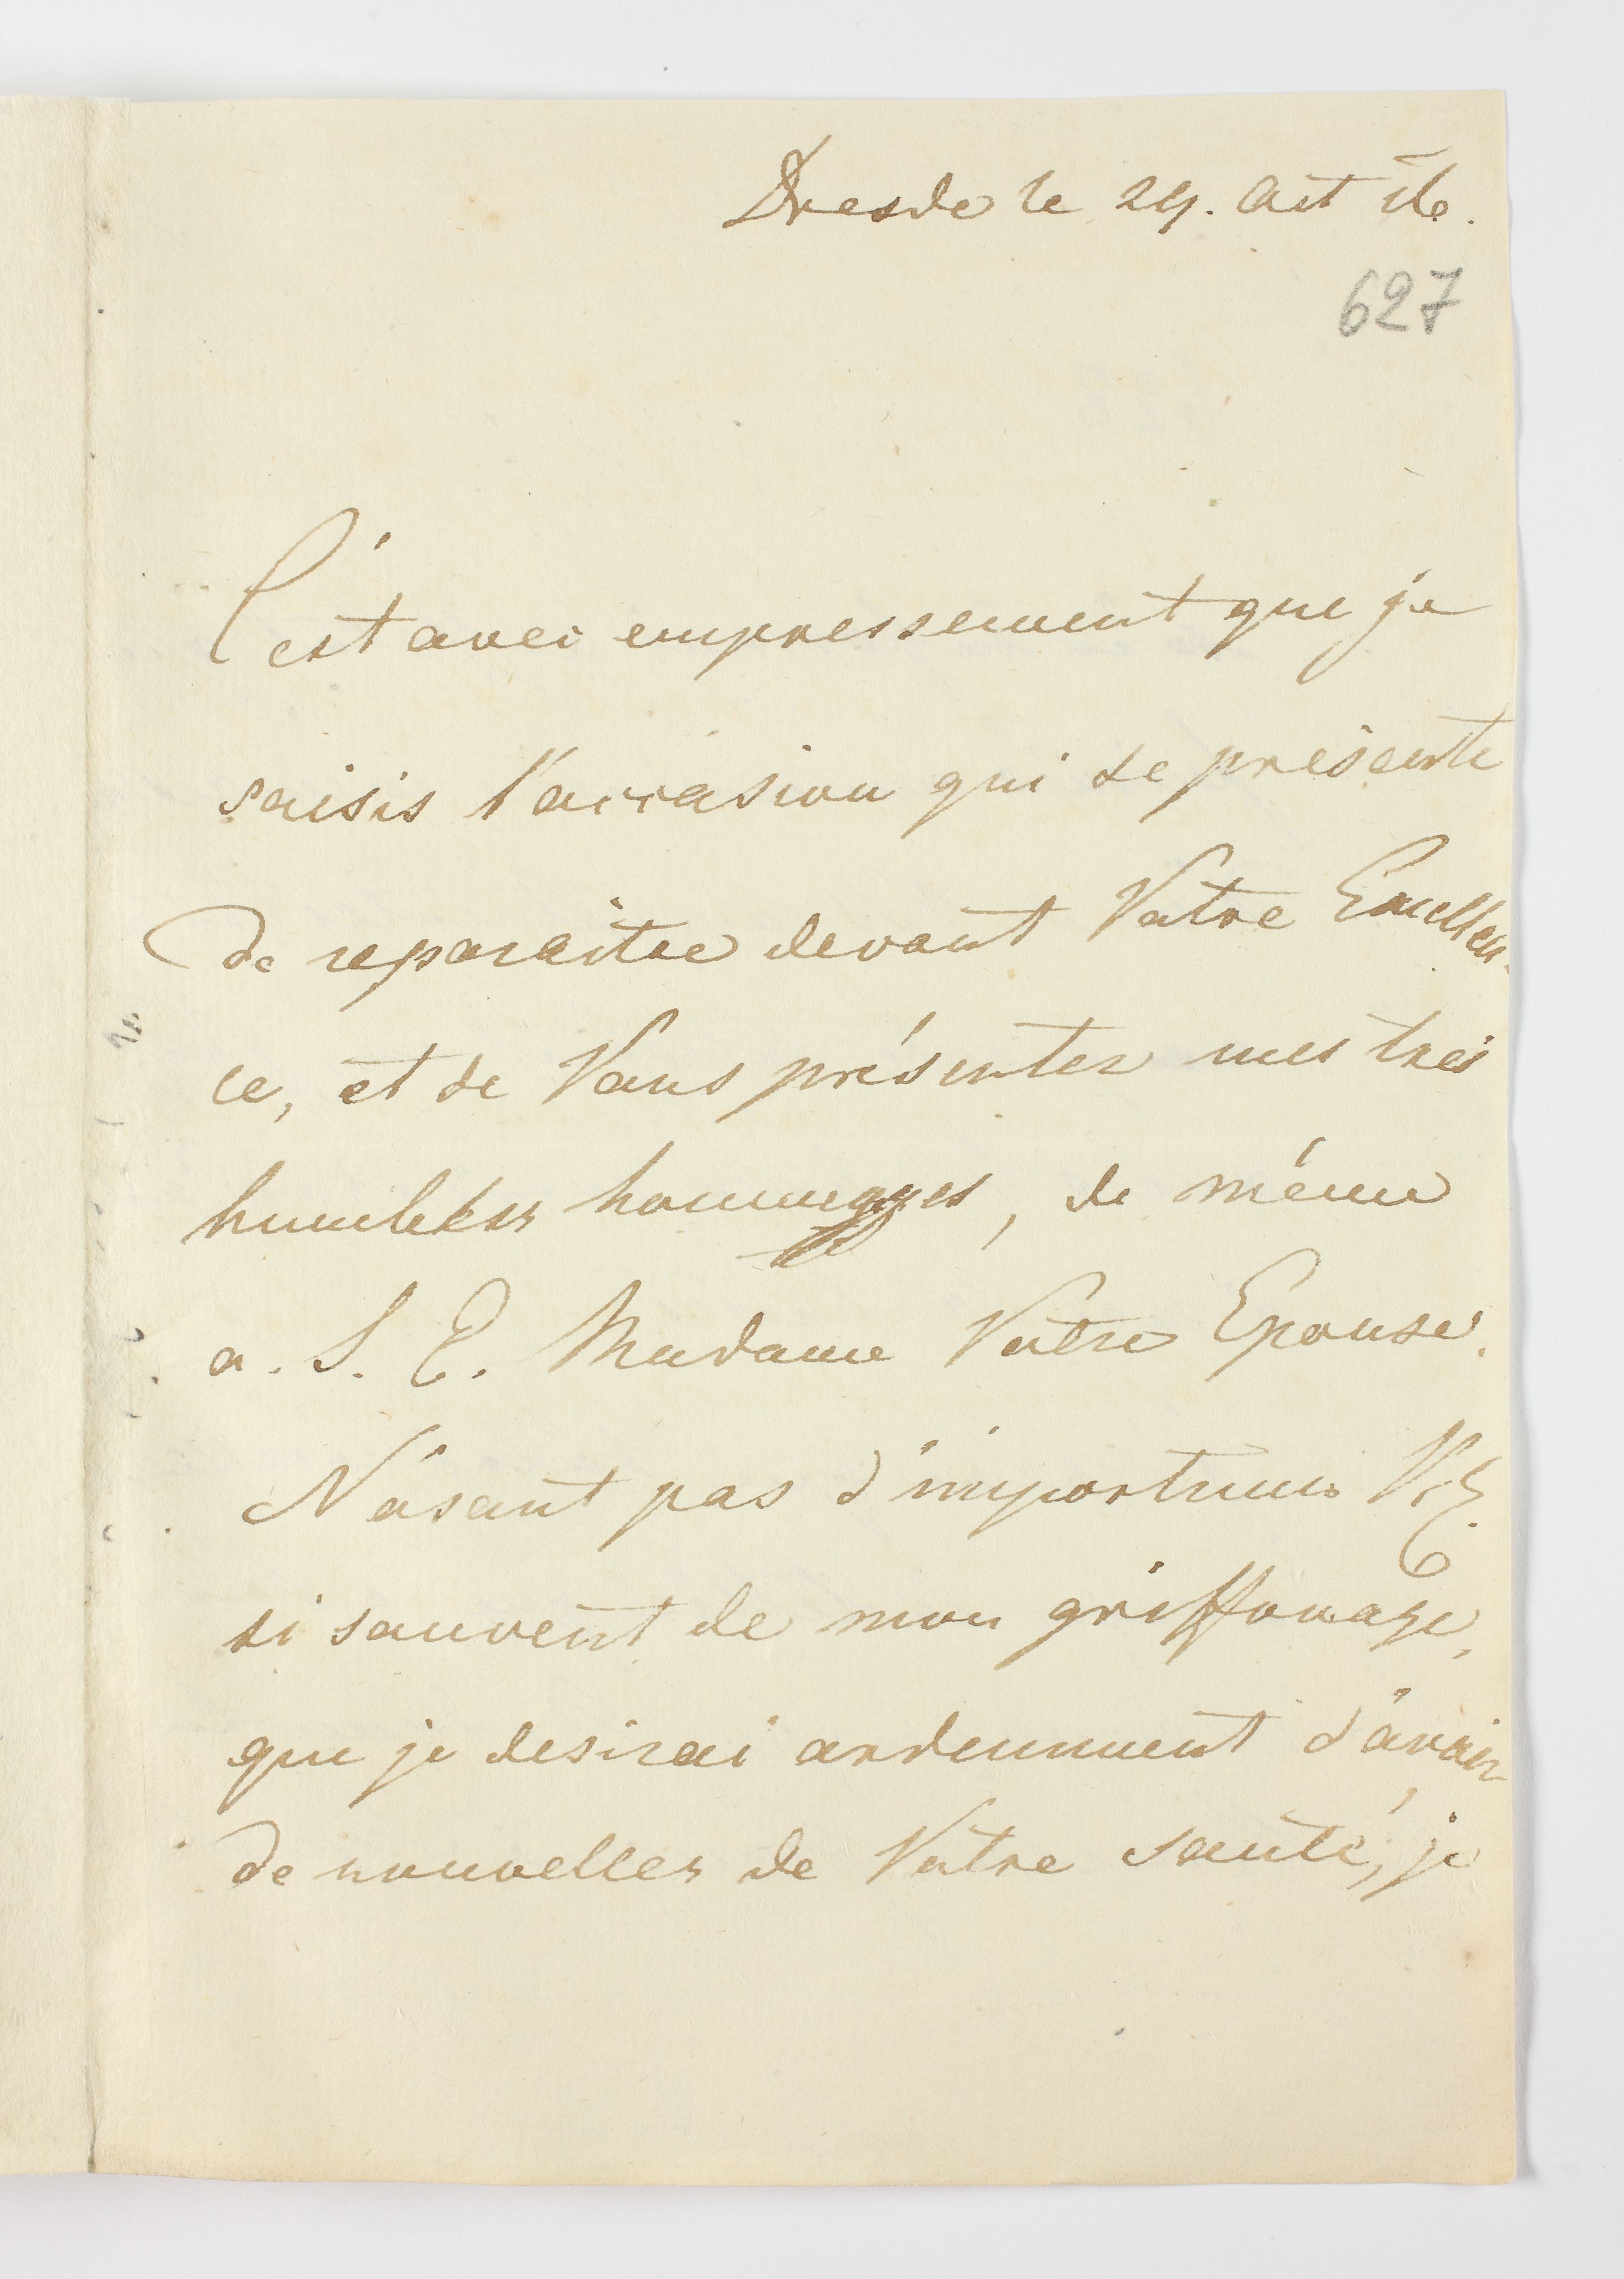 Dresde le 29. Aût
627
C'est avec empressement que je
saisis l'occasion qui se présente
de reparaitre devant Votre Excellen-
ce, et de Vous présenter mes très
humbles hommages, de même
a. S. E. Madame Votre Epouse.
N'osant pas d'importuner V. E.
si souvent de mon griffonage,
que je desirai ardemment d'avoir
de nouvelles de Votre santé, je